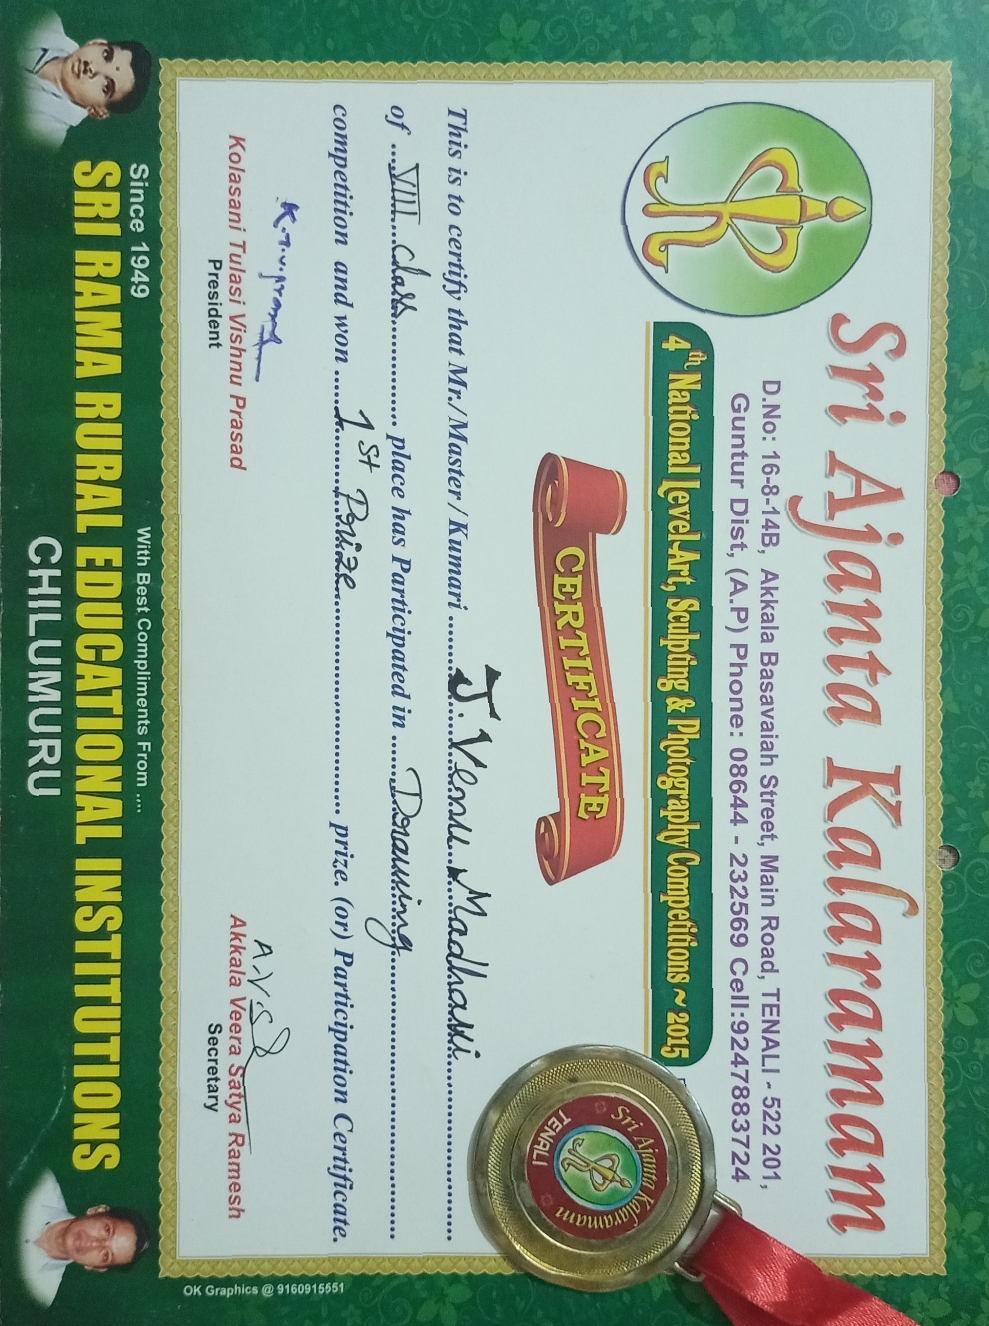 Sri Ajanta Kalaramam
D.No: 16-8-14B, Akkala Basavaiah Street, Main Road, TENALI - 522 201,
Guntur Dist, (A.P) Phone: 08644 - 232569 Cell:9247883724
4th National Level Art, Sculpting & Photography Competitions ~ 2015
Sri Ajanta Kalaramam
TENALI
CERTIFICATE
This is to certify that Mr./Master/Kumari ........J. Venu Madhavi........
of ...VIII Class............ place has Participated in ......Drawing..............
competition and won .....1st Prize.................... prize. (or) Participation Certificate.
K.T.V.Prasad
A.V.S
Kolasani Tulasi Vishnu Prasad
President
Akkala Veera Satya Ramesh
Secretary
OK Graphics @ 9160915551
Since 1949
With Best Compliments From ....
SRI RAMA RURAL EDUCATIONAL INSTITUTIONS
CHILUMURU